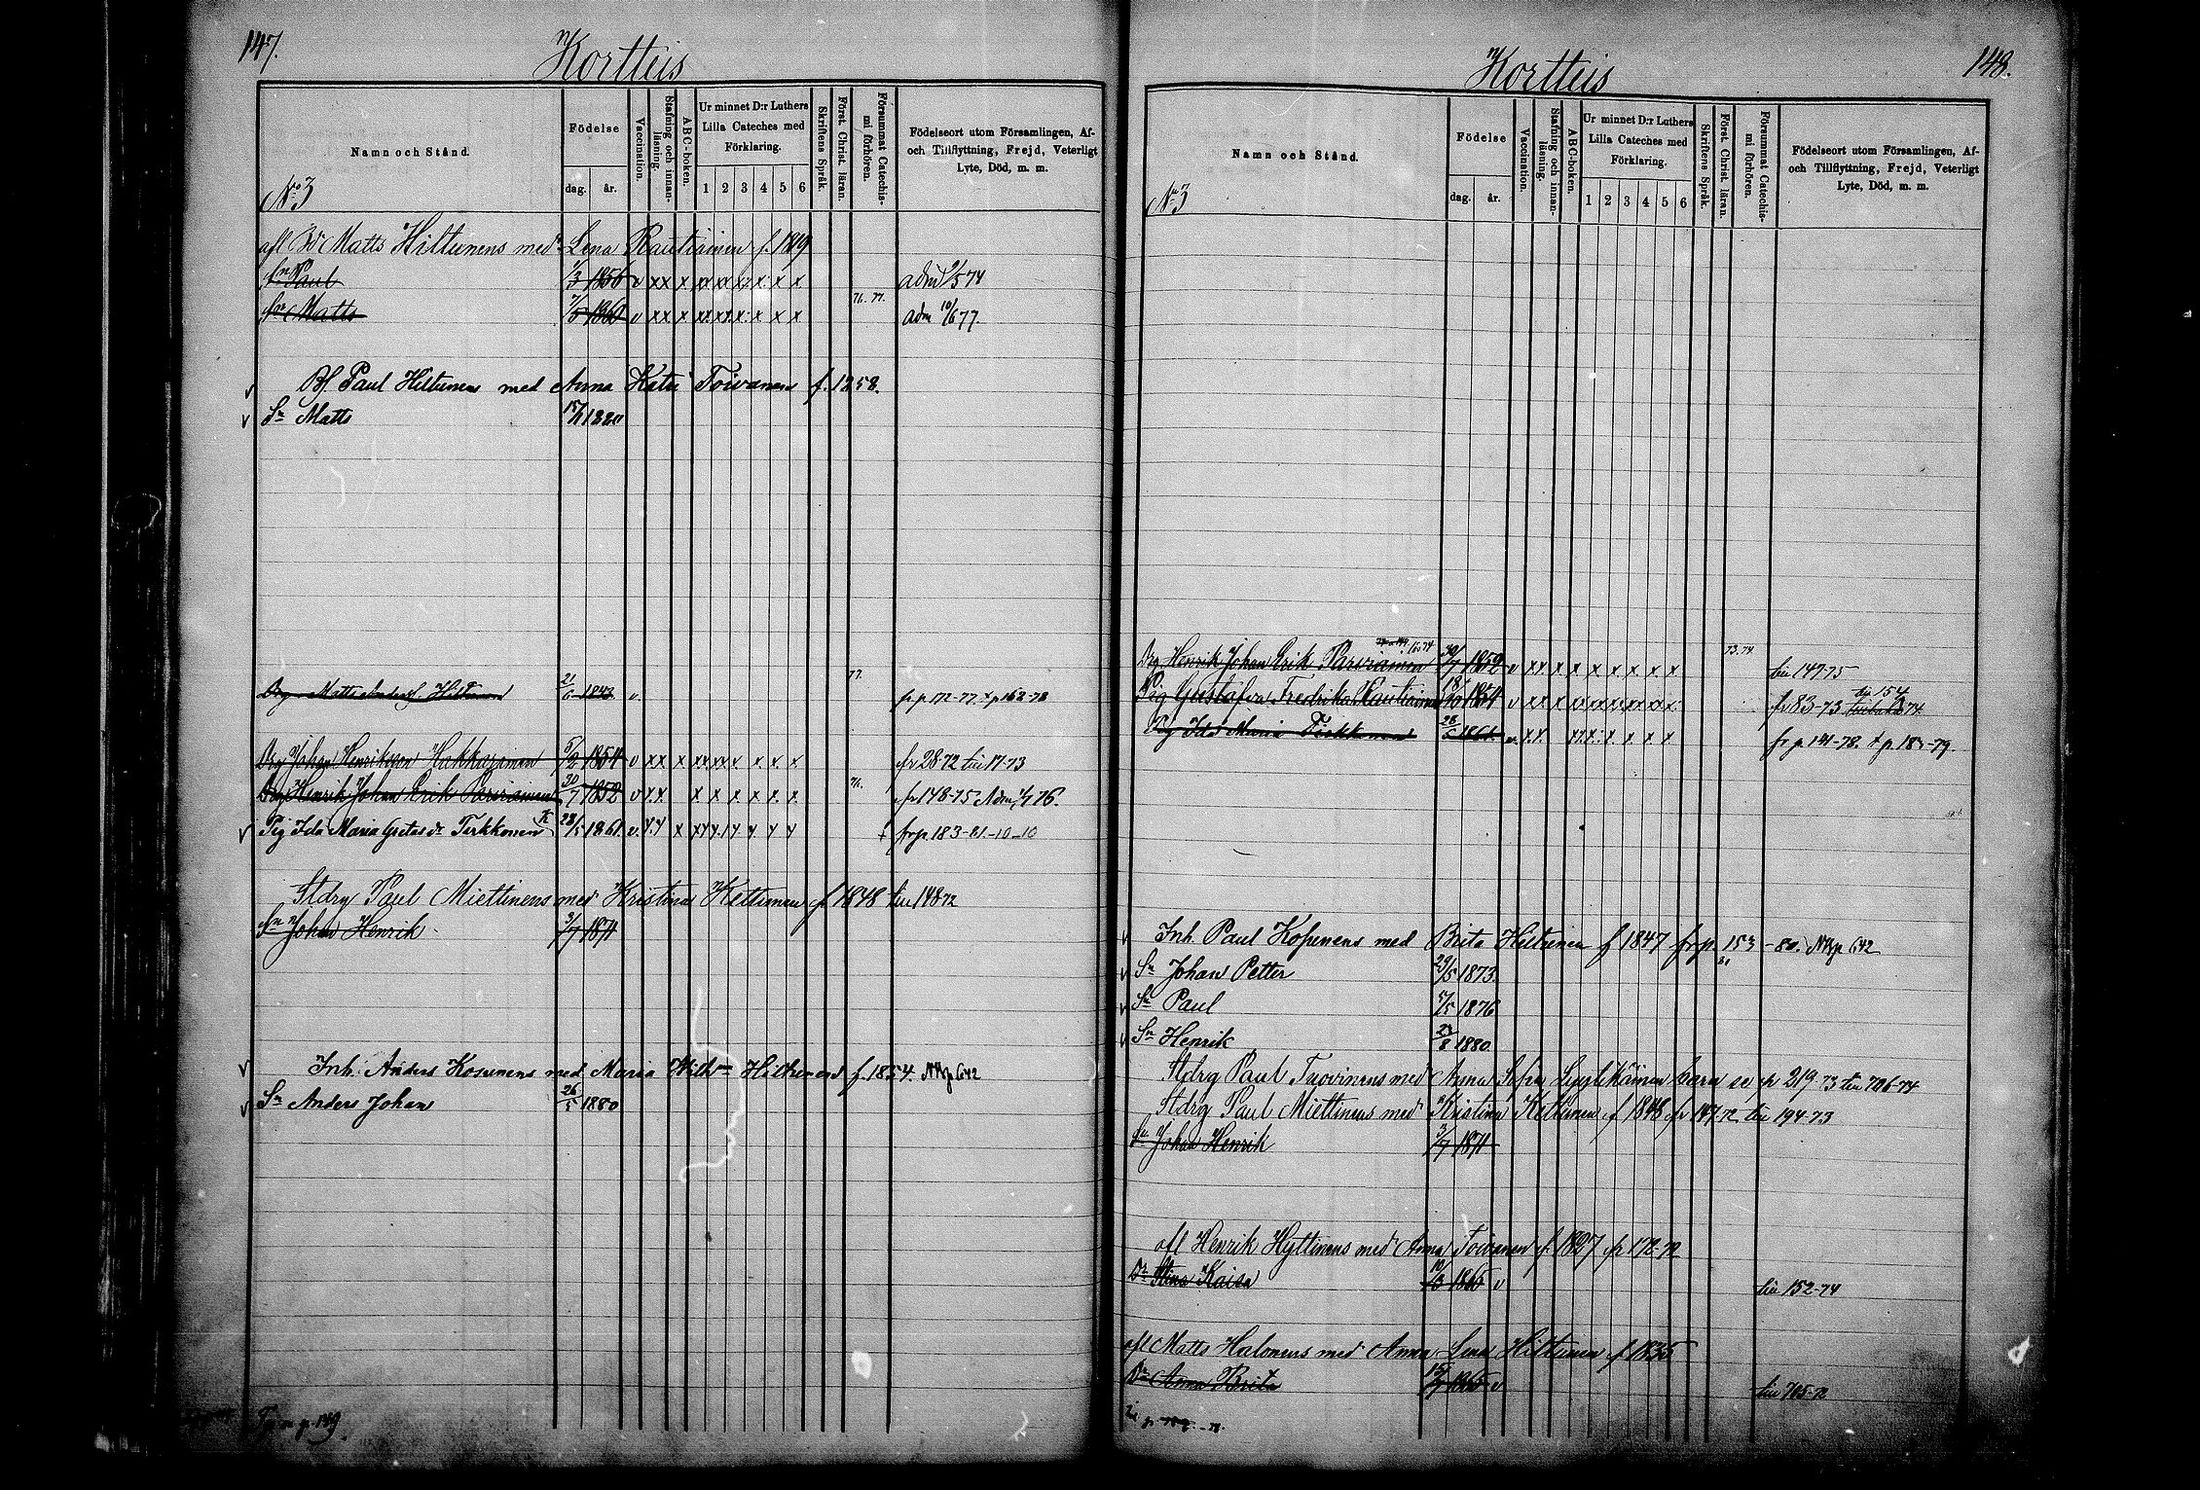 147.
Kortteis
Namn och Stånd.
Födelse
dag. år.
Vaccination.
Stafning och innan-
läsning.
ABC-boken.
Ur minnet D:r Luthers
Lilla Cateches med
Förklaring.
1 2 3 4 5 6
Skriftens Språk.
Först. Christ. läran.
Försummat Catechis-
mi förhören.
Födelseort utom Församlingen, Af-
och Tillflyttning, Frejd, Veterligt
Lyte, Död, m. m.
No 3
afl Bd Matts Hiltunens med Lena Rautiainen f. 1819
Sn Paul 1/3 1856 v xx x xx xx x x x x adm 9/5 74
Sn Matts 7/5 1860 v xx x xx xx x x x x 76. 77. adm 10/6 77
v Bf Paul Hiltunens med Anna Katri Toivanens f. 1858.
v Sn Matts 15/11 1880
Drg Matts Andersf. Hiltunen 21/6 1843 v. 77. fr p 172-77 t p 162-78
Drg Johan Henriksson Hakkarainen 5/2 1854 v xx x xx xx x x x x fr 28-72 till 17-73
Drg Henrik Johan Erik Parviainen 30/7 1852 v xx x x x x x x 76. fr 148-75 Adm 76.
v Pig Ida Maria Gretas dr Tirkkonen 28/5 1861 fr p. 183-81.-10-10
Stdrg Paul Miettinens med Kristina Kettunen f 1848 till 148 72
Sn Johan Henrik 3/7 1871
v Inh. Anders Kosunens med Maria Hiltunens f. 1854. 642
v Sn Anders Johan 26/5 1880
p. 149.
148.
Kortteis
Namn och Stånd.
Födelse
dag. år.
Vaccination.
Stafning och innan-
läsning.
ABC-boken.
Ur minnet D:r Luthers
Lilla Cateches med
Förklaring.
1 2 3 4 5 6
Skriftens Språk.
Först. Christ. läran.
Försummat Catechis-
mi förhören.
Födelseort utom Församlingen, Af-
och Tillflyttning, Frejd, Veterligt
Lyte, Död, m. m.
No 3
Drg Henrik Johan Erik Parviainen 30/7 1852 v xx x x x x x x x 73.74 till 147-75
Pig Gustafva Fredrika Rautiainen 18/10 1854 v xx x fr 83-73 till 154 74
Pig Ida Maria Tirkkonen 28/5 1861 v. x x. fr p 141-78. t p 183-79.
v Inh. Paul Kosunens med Brita Hiltunen f 1847 fr p. 153-80. 642
v Sn Johan Petter 29/5 1873
v Sn Paul 1876
v Sn Henrik 23/8 1880
Stdrg Paul Tuovinens med Anna Sofia barn se fr 219-73 till 726-74
Stdrg Paul Miettinens med Kristina Kettunen f 1848 fr 147 72 till 194-73
Sn Johan Henrik 3/7 1871
afl Henrik Hyttinens med Anna Toivanen f. 1827 fr 172-72
Dr Stina Kaisa 10/3 1865 v till 152-74
afl Matts Halonens med Anna Lena Hiltunen f 1835
Dr Anna Brita 15/7 1865 v till 765-72